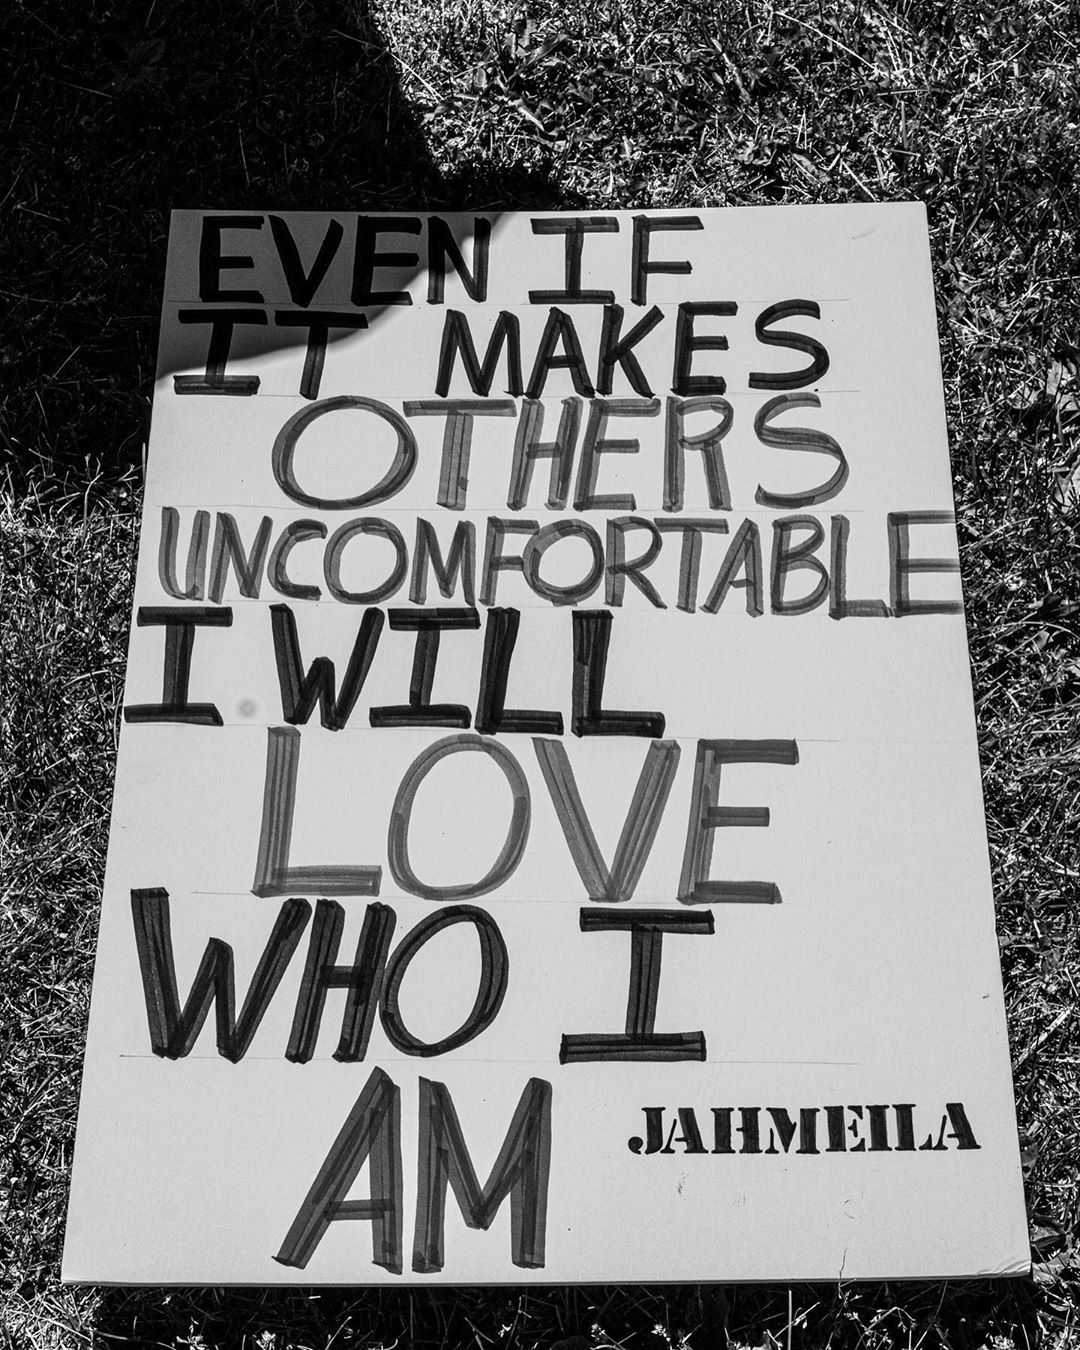 EVEN IF
IT MAKES
OTHERS
UNCOMFORTABLE
I WILL
LOVE
WHO I
AM
JAHMEILA